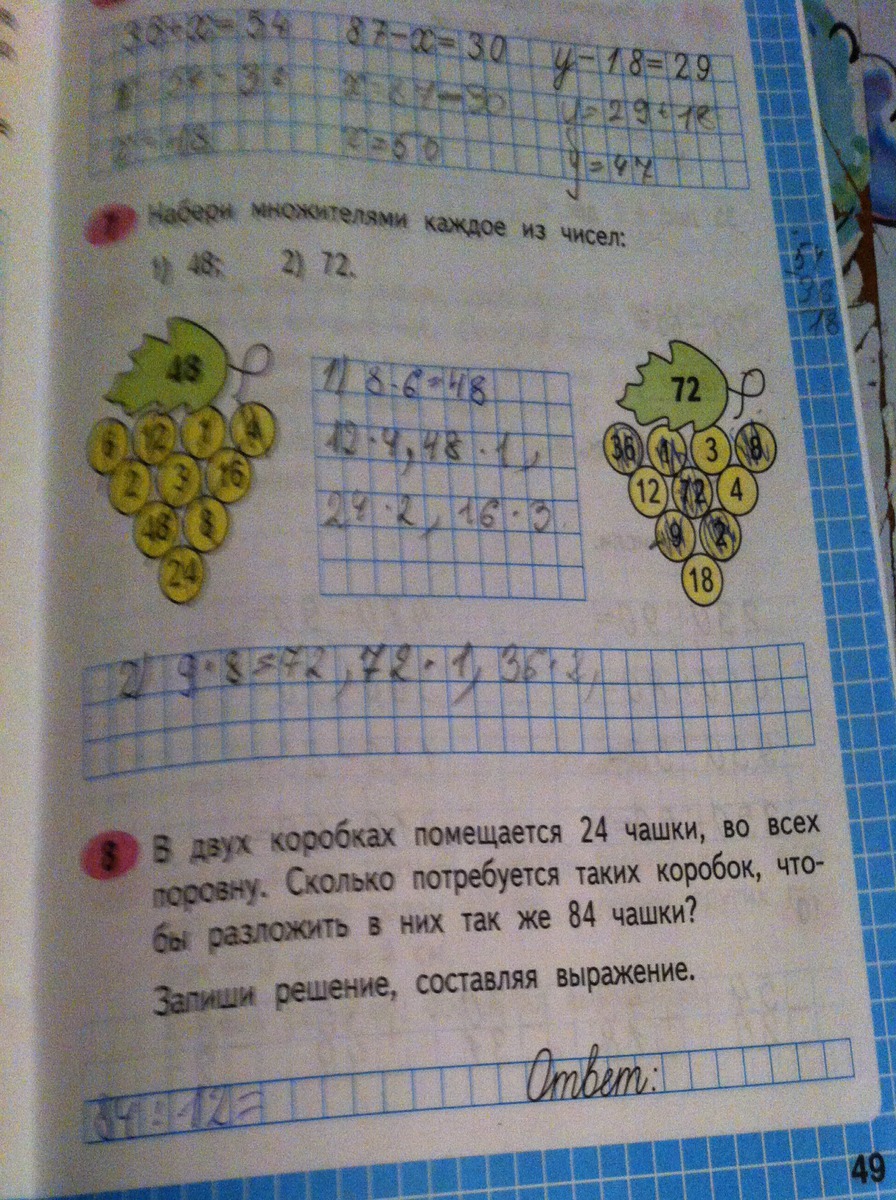 36+x=54 87-x=30 y-18=29
x=54-36 x=87-30 y=29+18
x=18 x=50 y=47
7 Набери множителями каждое из чисел:
1) 48; 2) 72.
54
36
18
48
6 12 1 4
2 3 16
48 8
24
1) 8·6=48
12·4, 48·1,
24·2, 16·3
72
36 1 3 8
12 72 4
9 2
18
2) 9·8=72, 72·1, 36·2,
8 В двух коробках помещается 24 чашки, во всех
поровну. Сколько потребуется таких коробок, что-
бы разложить в них так же 84 чашки?
Запиши решение, составляя выражение.
84:12= Ответ:
49